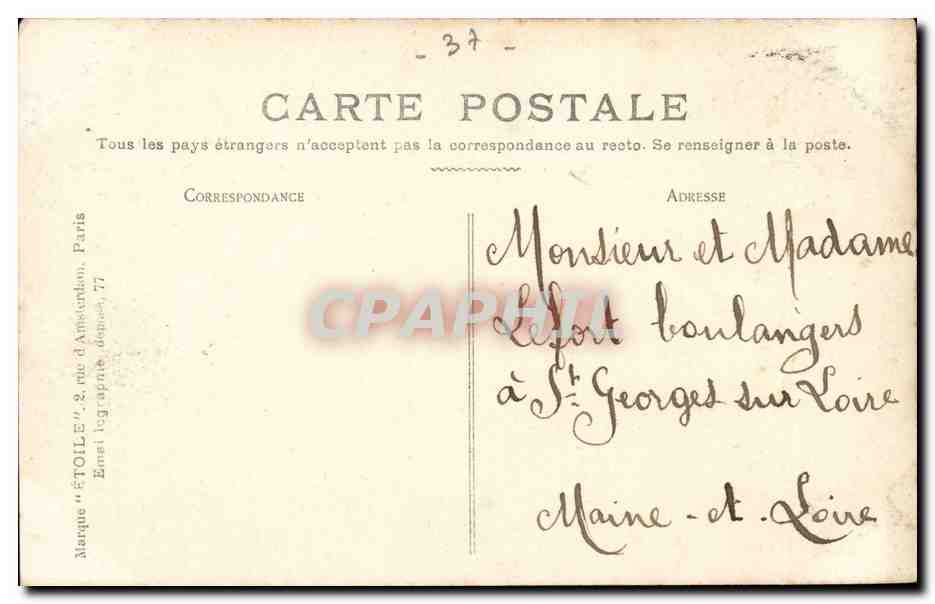 - 37 -
CARTE POSTALE
Tous les pays étrangers n'acceptent pas la correspondance au recto. Se renseigner à la poste.
CORRESPONDANCE
ADRESSE
Monsieur et Madame
Lefort boulangers
à St. Georges sur Loire
Maine-et-Loire
Marque "ÉTOILE", 2, rue d'Amsterdam, Paris
77
CPAPHIL